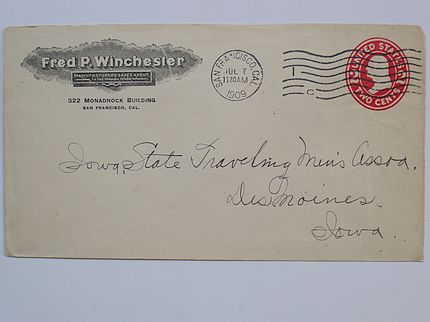 Fred P. Winchester
MANUFACTURERS SALES AGENT
322 MONADNOCK BUILDING
SAN FRANCISCO, CAL.
SAN FRANCISCO, CAL.
JUL 7
11 30 AM
1909
1
C
UNITED STATES
TWO CENTS
Iowa State Traveling Men's Assoa.
Des Moines.
Iowa.